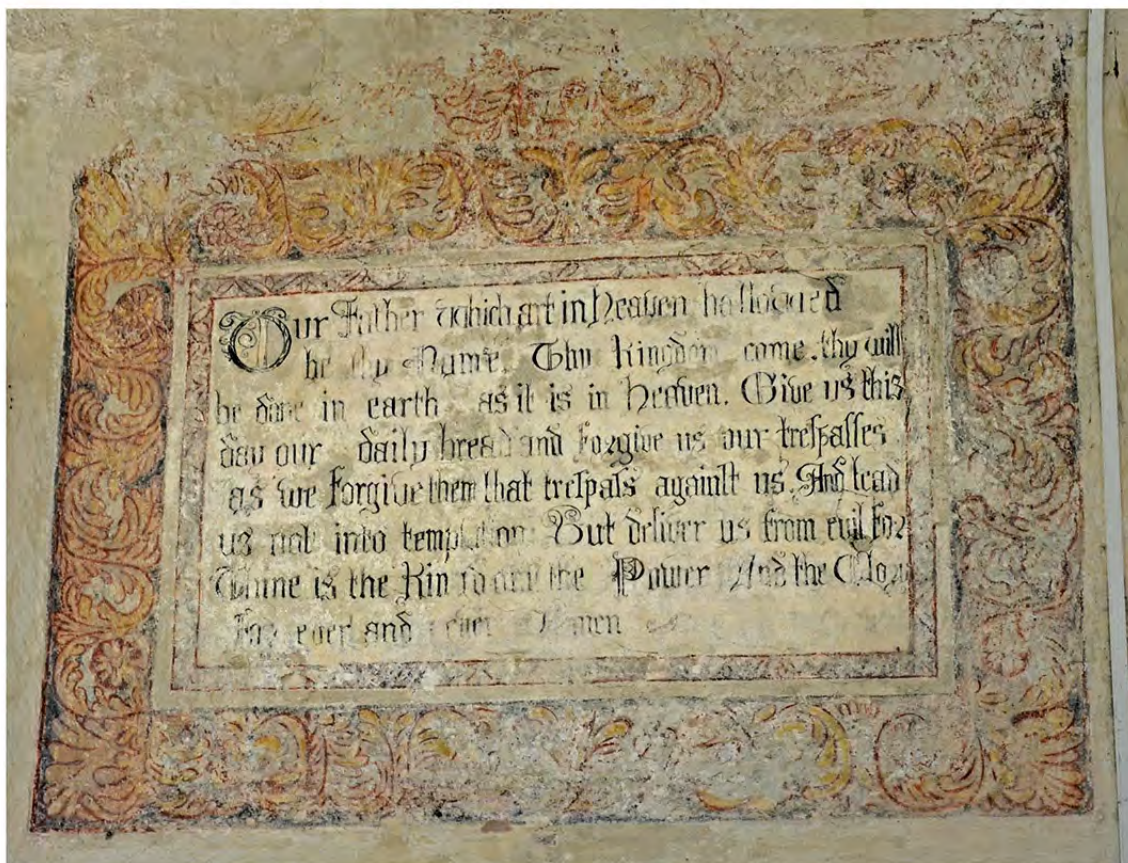 Our Father which art in Heaven hallowed
be thy Name. Thy Kingdom come. thy will
be done in earth as it is in Heaven. Give us this
day our daily bread and forgive us our trespasses
as we forgive them that trespass against us. And lead
us not into temptation But deliver us from evil for
Thine is the the Power And the
For ever and ever Amen